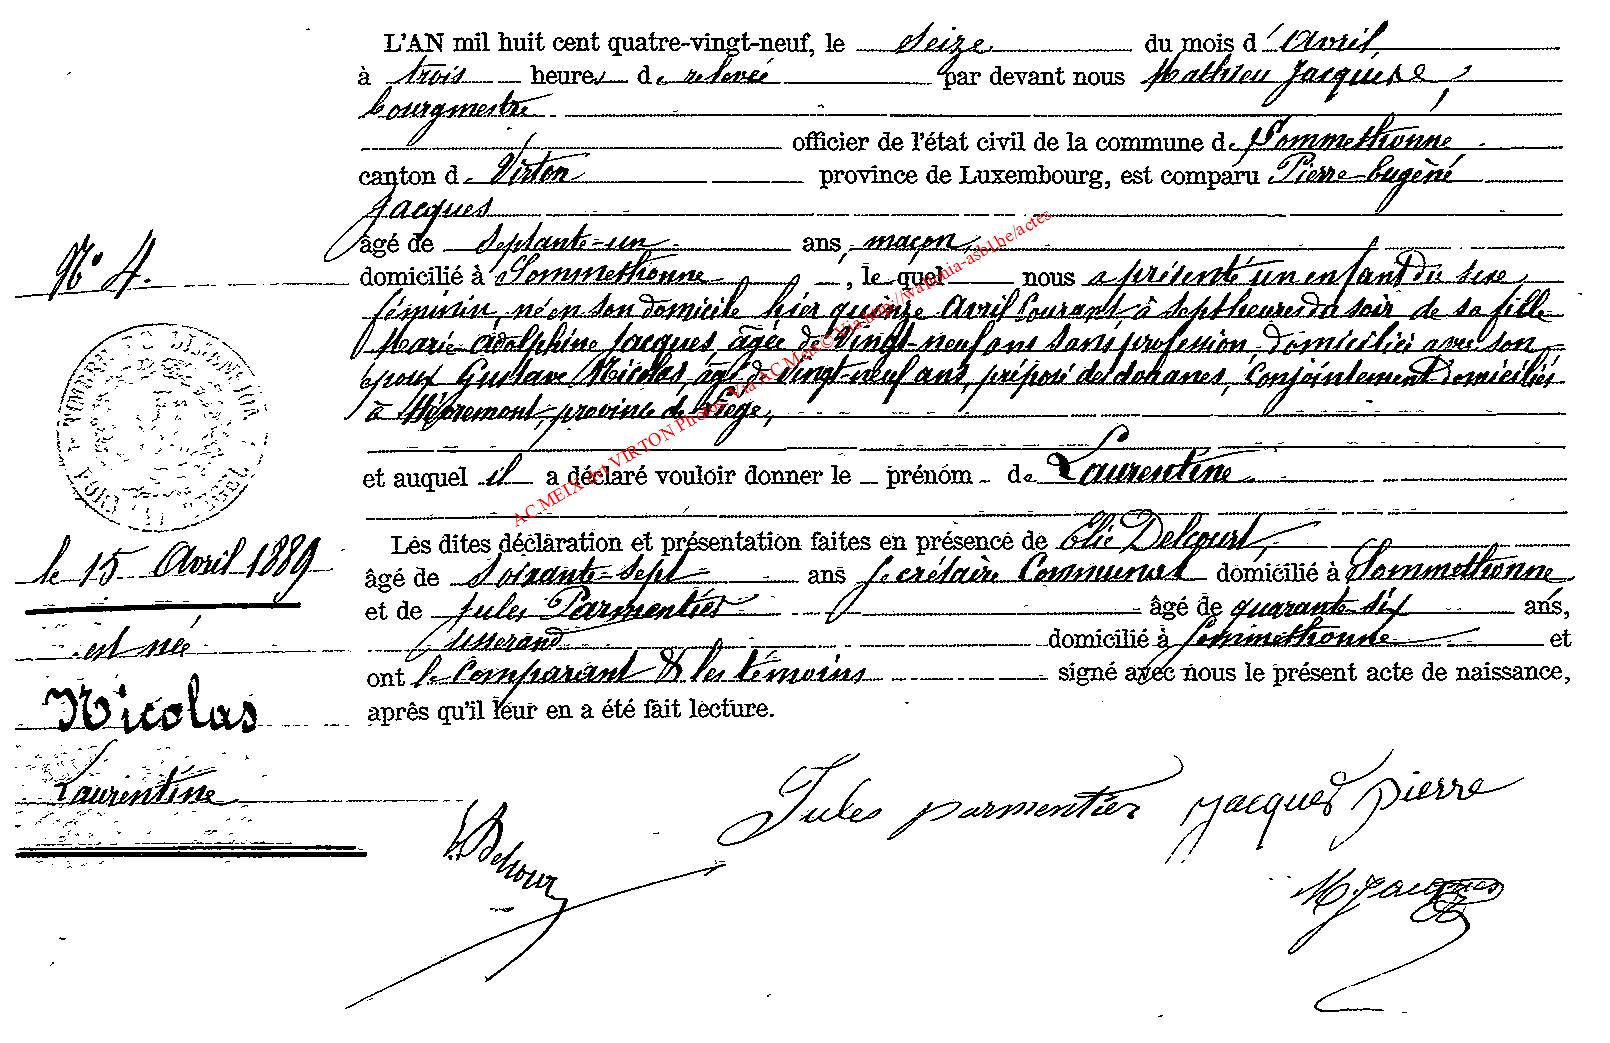 L'AN mil huit cent quatre-vingt-neuf, le seize du mois d'Avril,
à trois heures de relevée par devant nous Mathieu Jacques,
bourgmestre
officier de l'état civil de la commune de Sommethonne
canton de Virton province de Luxembourg, est comparu Pierre Eugène
Jacques
âgé de septante-un ans, maçon,
domicilié à Sommethonne, le quel nous a présenté un enfant du sexe
féminin, né en son domicile hier quinze Avril Courant à sept heures du soir de sa fille
Marie Adolphine Jacques, âgée de vingt-neuf ans sans profession, domiciliée avec son
époux Gustave Nicolas, âgé de vingt-neuf ans, préposé des douanes, conjointement domiciliés
à province de Liège,
et auquel il a déclaré vouloir donner le prénom de Laurentine
Les dites déclaration et présentation faites en présence de Elie Delcourt,
âgé de soixante-sept ans secrétaire Communal domicilié à Sommethonne
et de Jules Parmentier âgé de quarante-six ans,
tisserand domicilié à Sommethonne et
ont le Comparant & les témoins signé avec nous le présent acte de naissance,
après qu'il leur en a été fait lecture.
N° 4.
le 15 Avril 1889
est née
Nicolas
Laurentine
Jules parmentier Jacques pierre
E. Delcour
M. Jacques